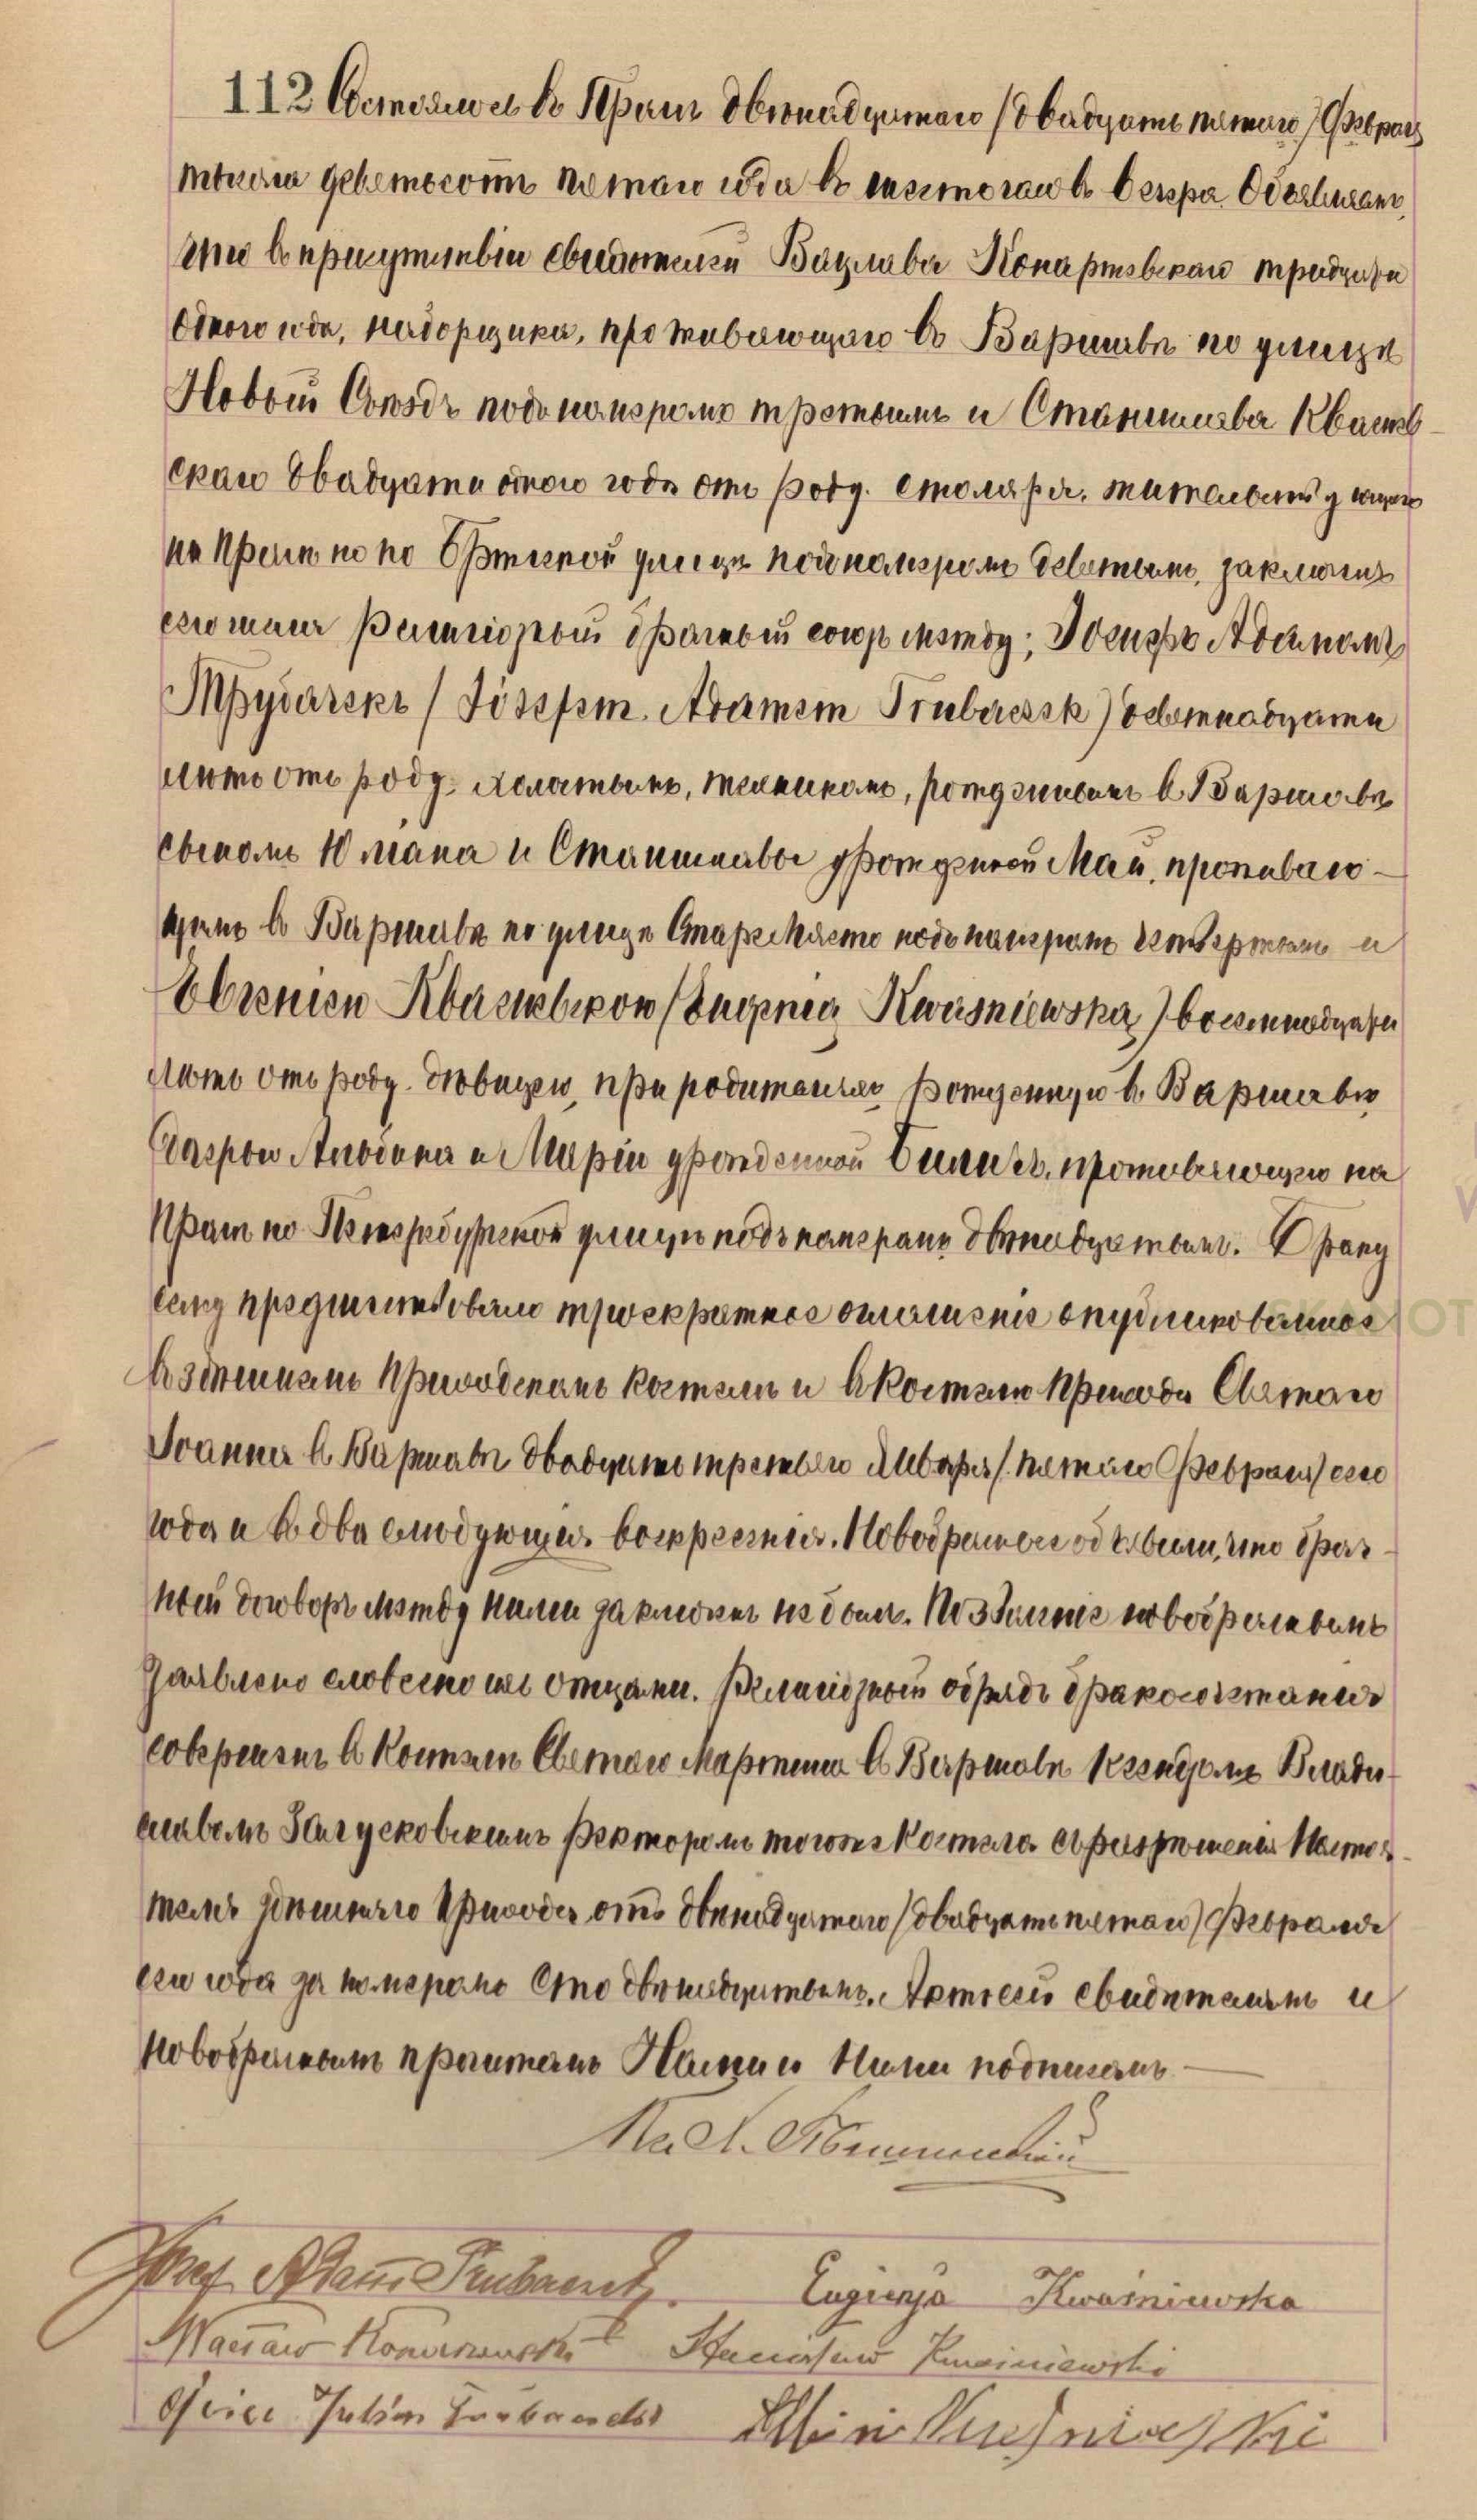 112 Состоялось въ Прагѣ двѣнадцатаго / двадцать пятаго / Февраля
тысяча девятьсотъ пятаго года въ шесть часовъ вечера. Объявляемъ,
что въ присутствіи свидѣтелей Вацлава Конаржевскаго тридцати
одного года, наборщика, проживающаго въ Варшавѣ по улицѣ
Новый Съѣздъ подъ номеромъ третьимъ и Станислава Квасьнев-
скаго двадцати одного года отъ роду, столяра, жительствующаго
на Прагѣ по улицѣ подъ номеромъ девятымъ, заключенъ
сего числа религіозный брачный союзъ между: Іосифъ Адамомъ
/ Józefem Adamem ) девятнадцати
лѣтъ отъ роду, холостымъ, рожденнымъ въ Варшавѣ
сыномъ Юліана и Станиславы урожденной Май, проживаю-
щимъ въ Варшавѣ по улицѣ Старе Място подъ номеромъ четвертымъ и
Евгеніею Квасьневскою (Eugenią Kwaśniewską) восемнадцати
лѣтъ отъ роду, дѣвицею, при родителяхъ, рожденною въ Варшавѣ
дочерью Альбина и Маріи урожденной проживающею на
Прагѣ по Петербургской улицѣ подъ номеромъ двѣнадцатымъ. Браку
сему предшествовало троекратное оглашеніе опубликованное
въ здѣшнемъ приходскомъ костелѣ и въ костелѣ прихода Святаго
Іоанна въ Варшавѣ двадцать третьяго Января / пятаго Февраля / сего
года и въ два слѣдующія воскресенія. Новобрачные объявили, что брач-
ный договоръ между ними заключенъ не былъ. Позволеніе новобрачнымъ
заявлено словесно ихъ отцами. Религіозный обрядъ бракосочетанія
совершенъ въ Костелѣ Святаго Мартина въ Варшавѣ Ксендзомъ Влади-
славомъ ректоромъ того же Костела съ разрѣшенія Настоя-
теля здѣшняго прихода отъ двѣнадцатаго / двадцать пятаго / Февраля
сего года за номеромъ сто двѣнадцатымъ. Актъ сей свидѣтелямъ и
новобрачнымъ прочитанъ Нами и ними подписанъ. —
Józef Adam Eugienja Kwaśniewska
Wacław Stanisław Kwaśniewski
Ojciec Julian